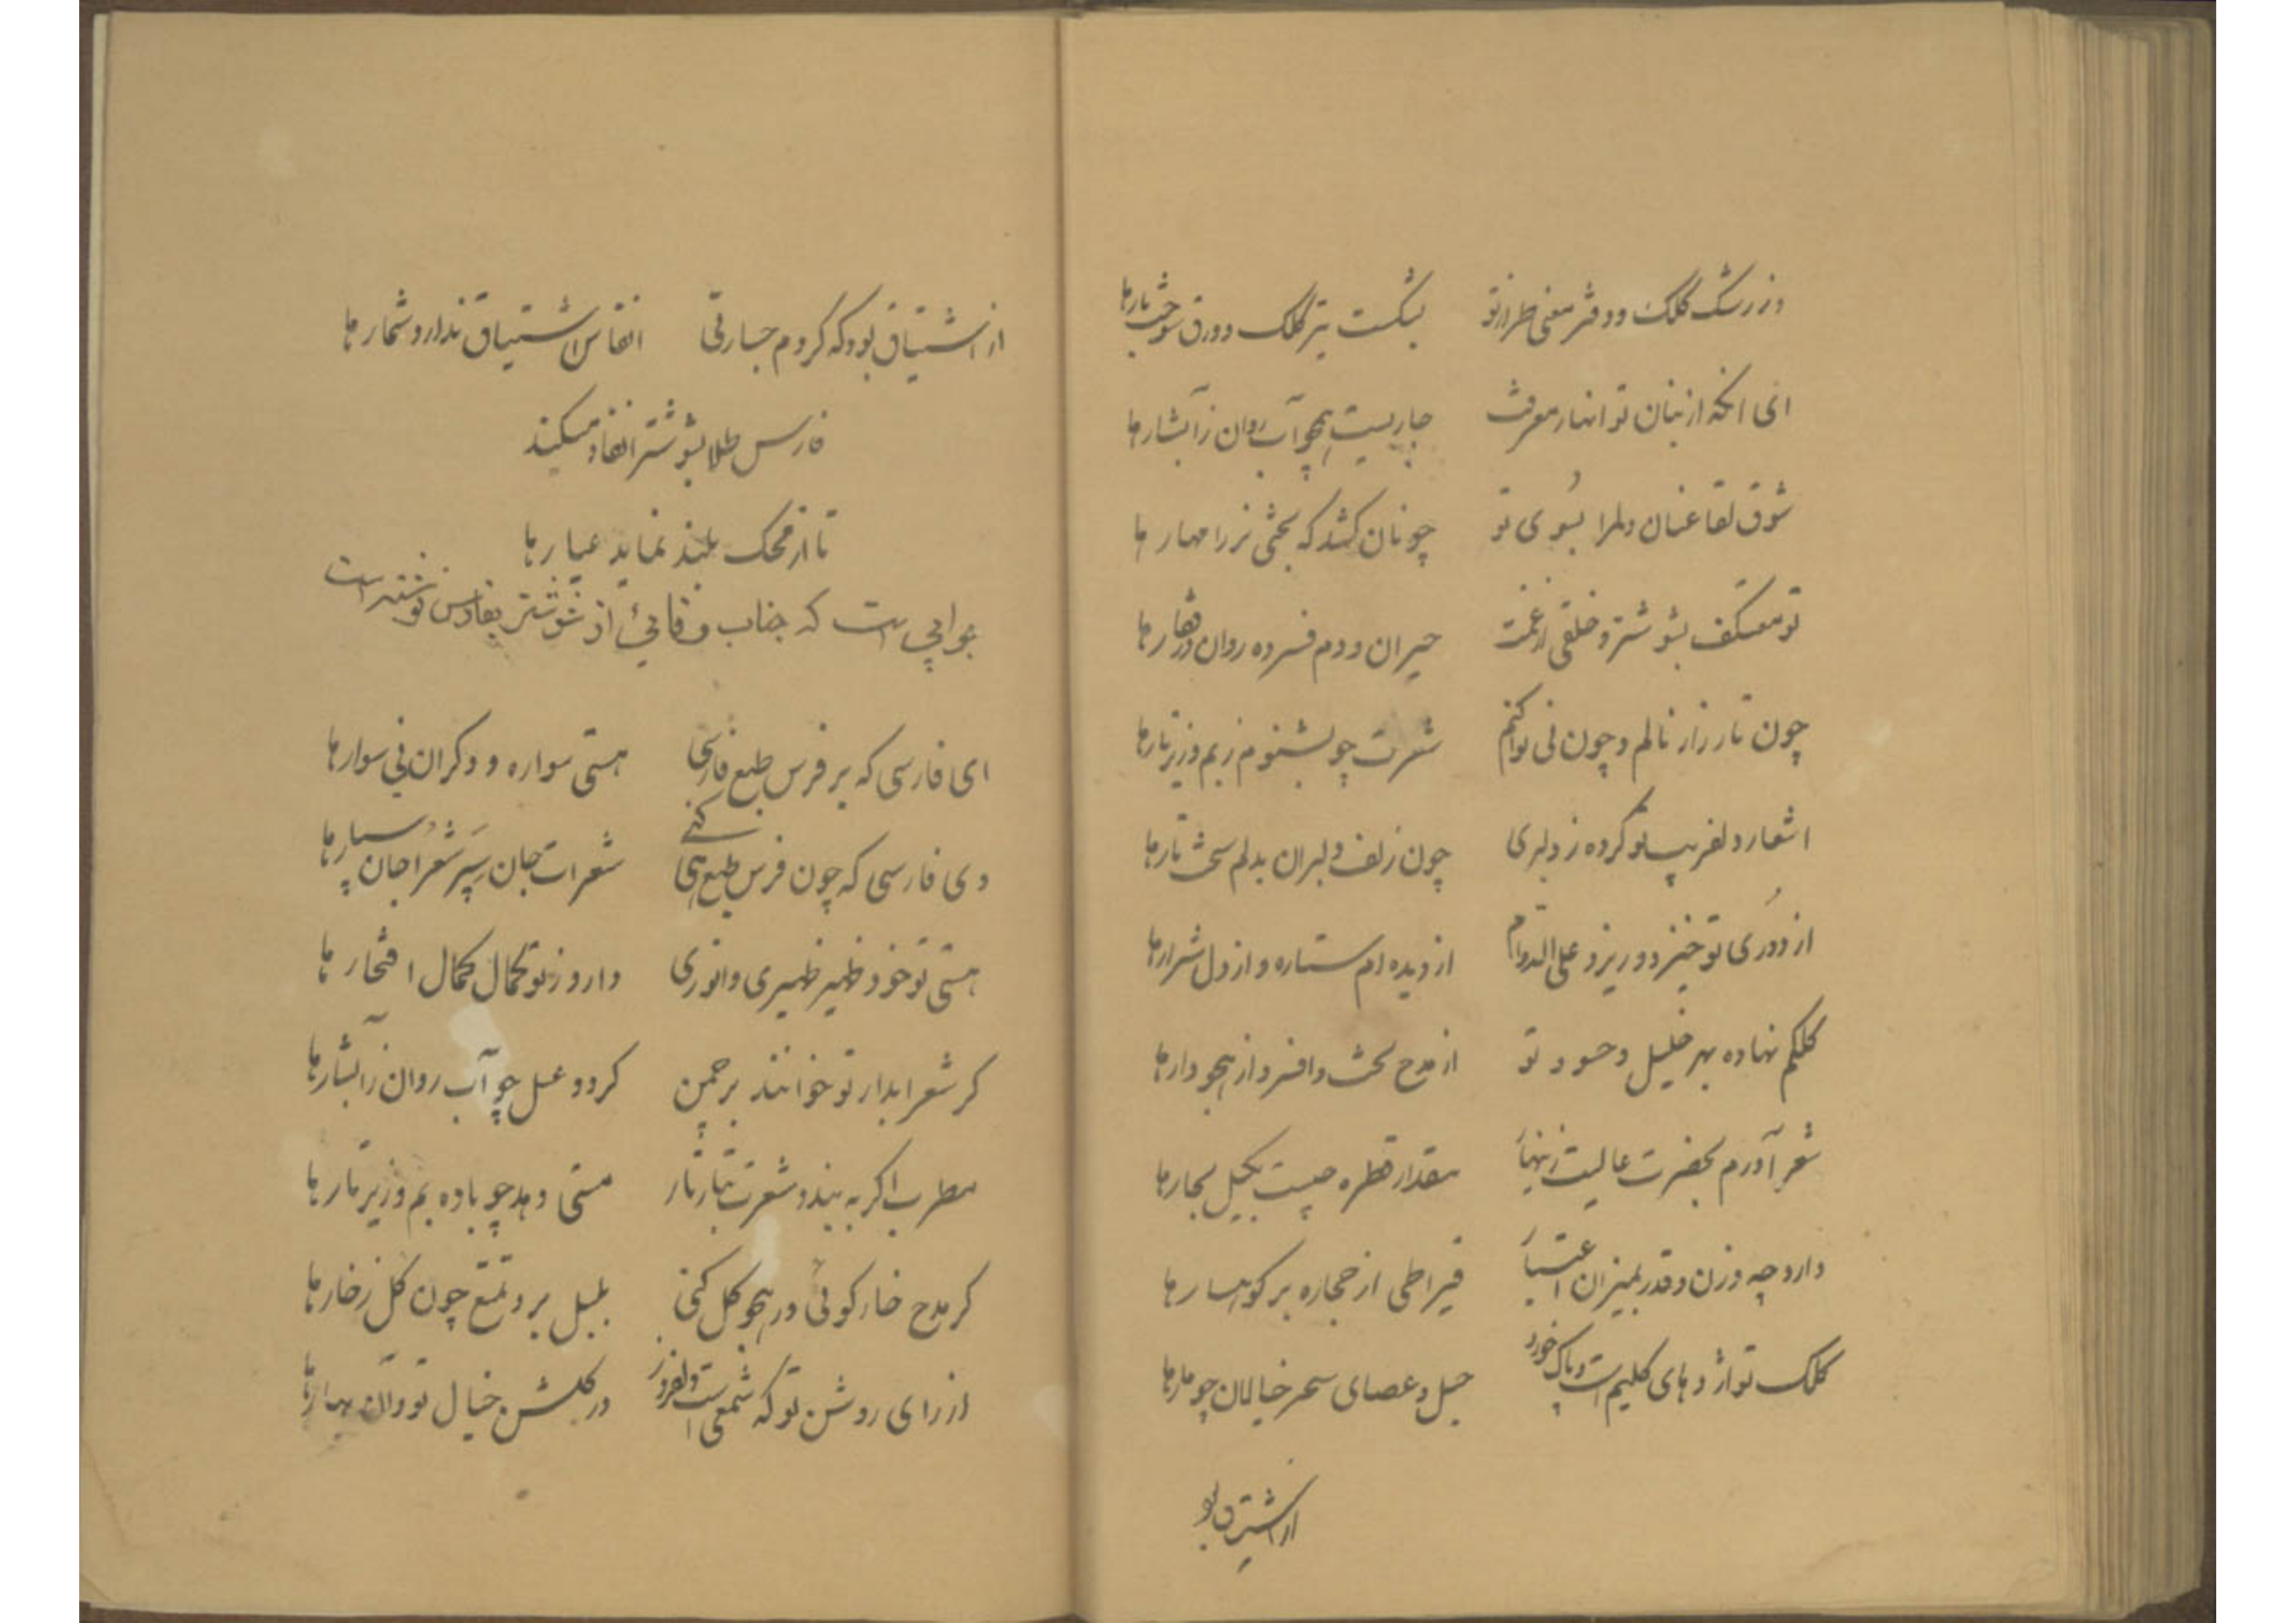 وز رشک کلک و دفتر معنی طراز تو بشکست تیر کلک و ورق سوخت بارها
ای انکه از بنان تو انهار معرفت جاریست همچو آب روان ز آبشارها
شوق لقا عنان دلم را بسوی تو چونان کشد که بختی نر را مهارها
تو معتکف بشوشتر و خلقی از غمت حیران و دم فسرده روان در قفارها
چون تار زار نالم و چون نی نوا کنم شعرت چو بشنوم ز بم و زیر تارها
اشعار دلفریب تو کرده ز دلبری چون زلف دلبران بدلم سخت تارها
از دوری تو خیزد و ریزد علی الدوام از دیده ام ستاره و از دل شرارها
کلکم نهاده بهر خلیل و حسود تو از مدح تخت و افسر و از هجو دارها
شعر آورم بحضرت عالیت زینهار مقدار قطره چیست بخیل بحارها
دارد چه وزن و قدر بمیزان اعتبار قیراطی از حجاره بر کوهسارها
کلک تو اژدهای کلیم است و پاک خورد حبل و عصای سحر خیالان چو مارها
از اشتیاق بود
از اشتیاق بود که کردم جسارتی انفاس اشتیاق ندارد شمارها
فارس طلا بشوشتر انفاد میکند
تا از محک بلند نماید عیارها
جوابی است که جناب وفائی از شوشتر بفارس نوشته است
ای فارسی که بر فرس طبع فارسی هستی سواره و دکران نی سوارها
وی فارسی که چون فرس طبع هی کنی شعرات جان سپر شعرا جان سپارها
هستی تو خود ظهیر ظهیری و انوری دارد ز تو کمال کمال افتخارها
کر شعر ابدار تو خوانند بر چمن کردد عسل چو آب روان ز آبشارها
مطرب اکر به بیند و شعرت بتار تار مستی دهد چو باده بم و زیر تارها
کر مدح خار کوئی و در هجو کل کنی بلبل برد تمتع چون کل ز خارها
از رای روشن تو که شمعی است دلفروز در کلشن خیال تو و آن بهارها